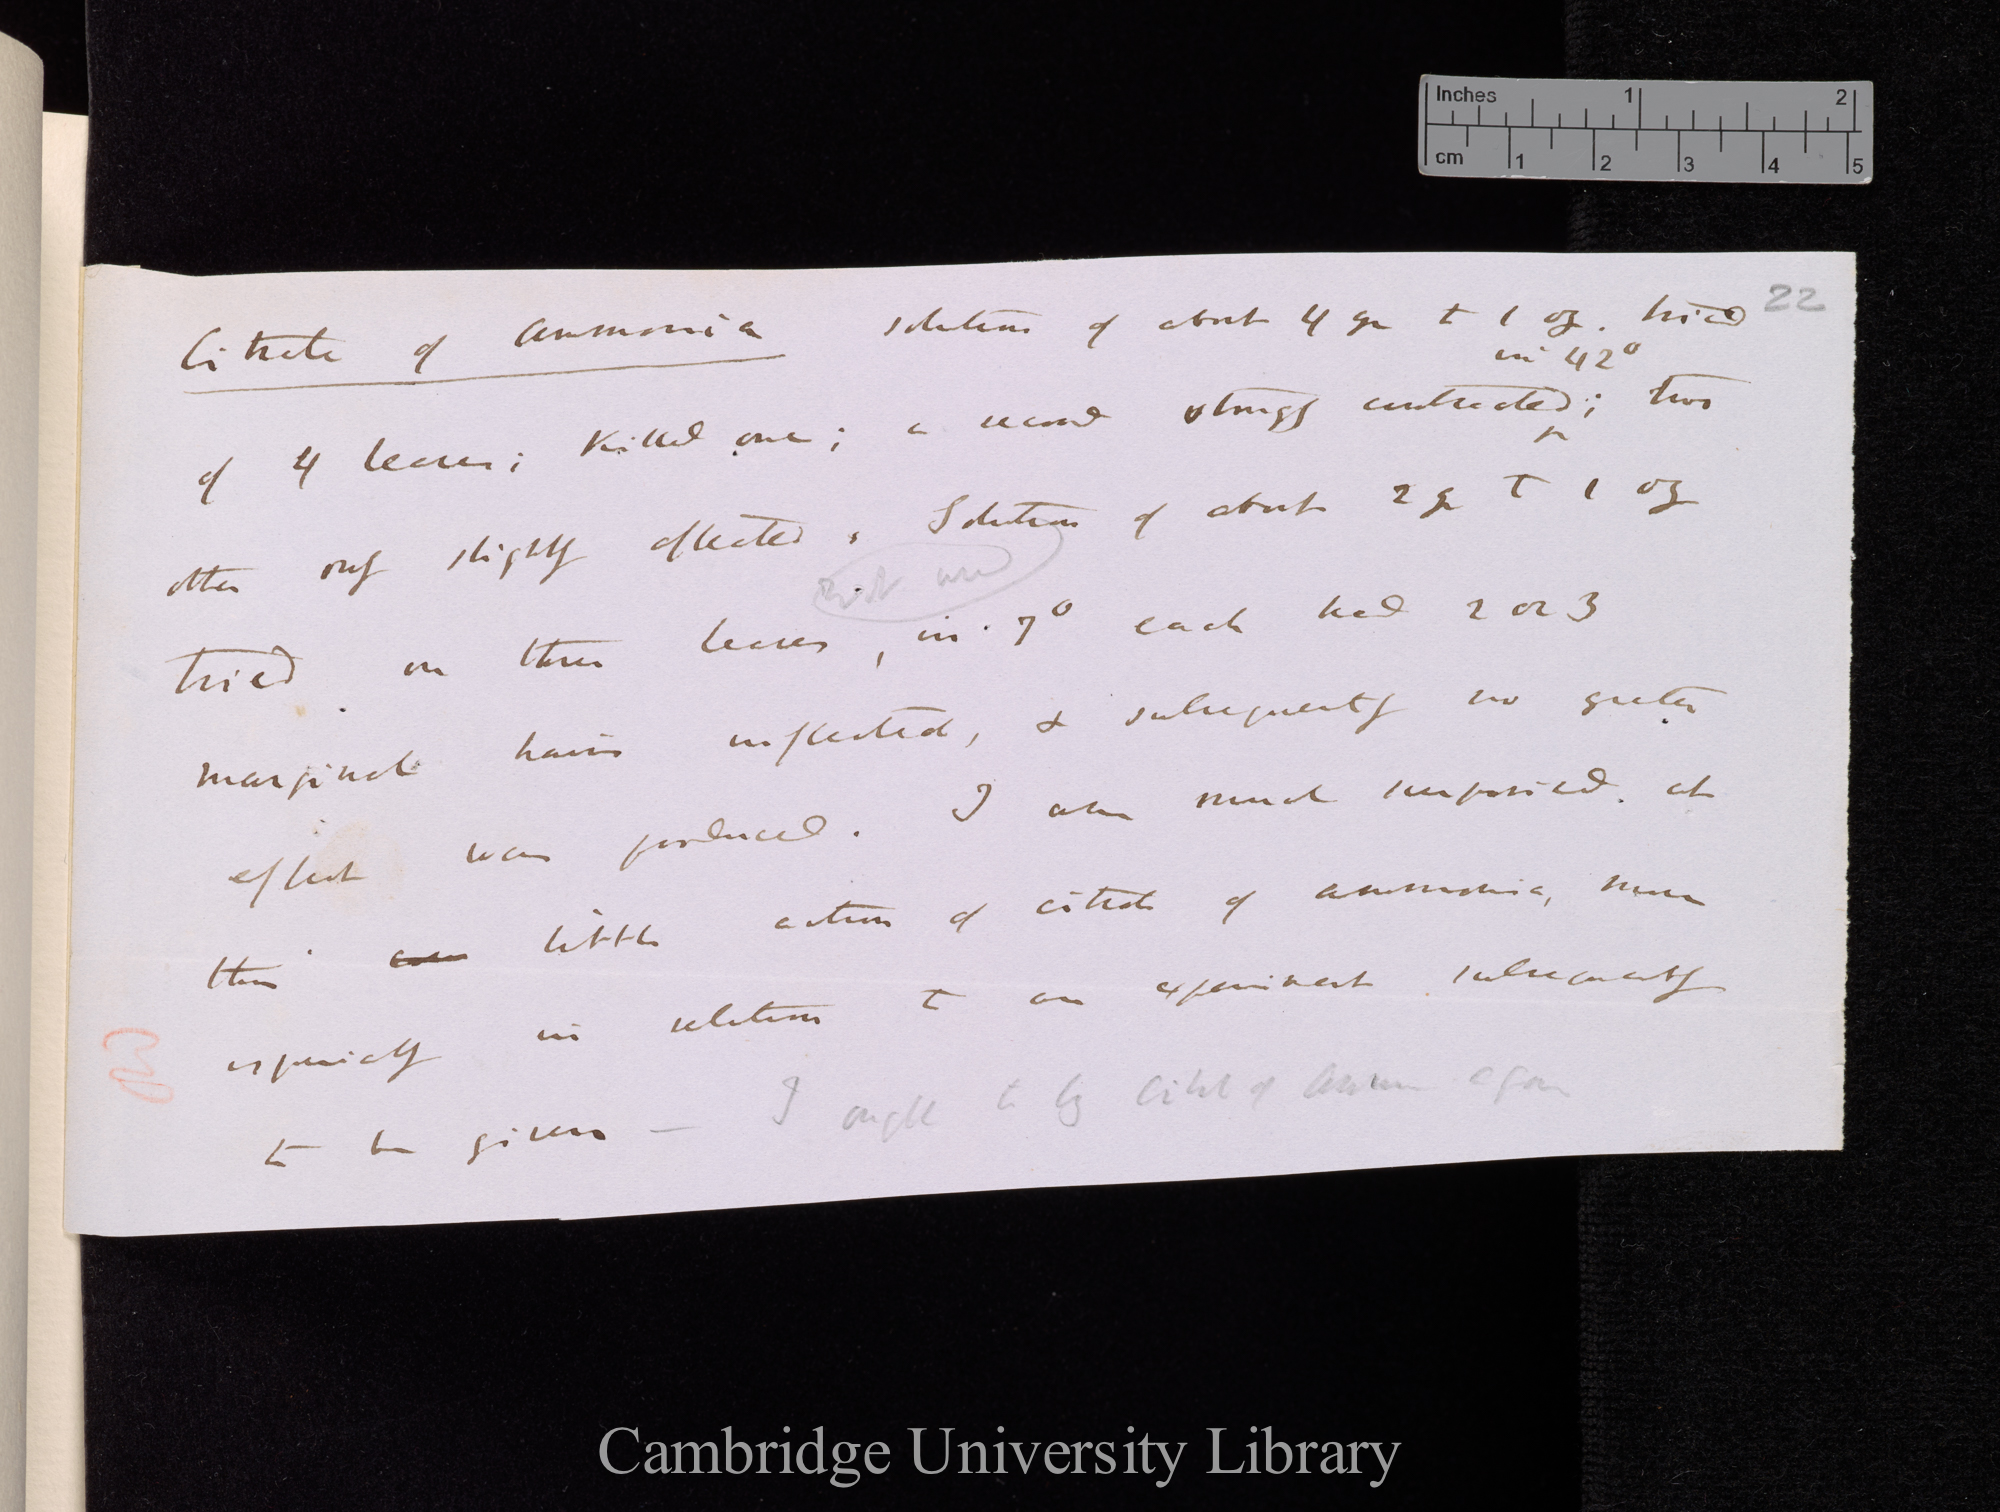 Inches 1 2
cm 1 2 3 4 5
22
Citrate of Ammonia solution of about 4 gr to 1 oz. tried
in 42°
of 4 leaves; killed one; a second strongly contracted ‸; two
other only slightly affected. Solution of about 2 gr to 1 oz
tried on three leaves, in 7° each had 2 or 3
marginal hairs inflected, & subsequently no greater
effect was produced. I am much surprised at
this little action of citrate of ammonia, more
especially in relation to an experiment subsequently
to be given — I ought to try Citrate of Ammon again
Cambridge University Library